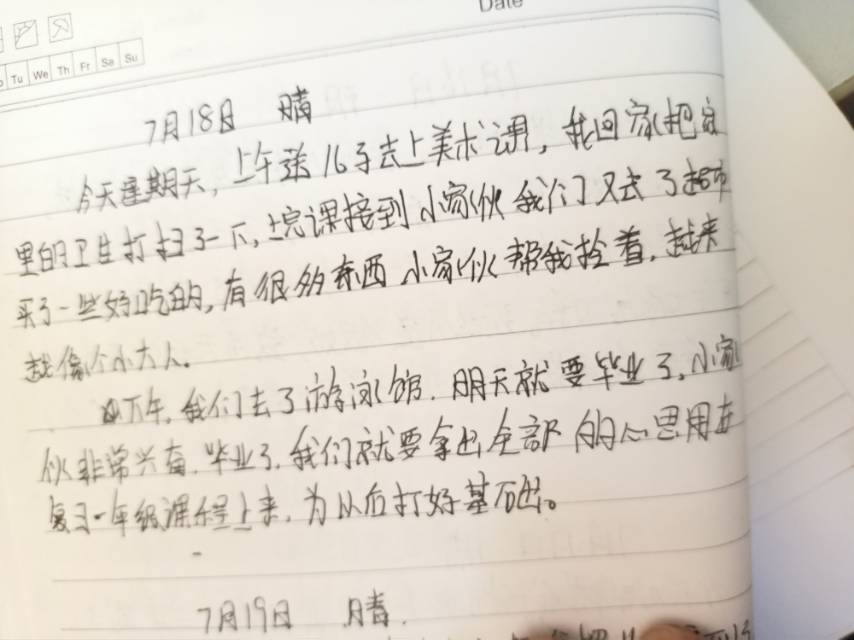 Date
Tu We Th Fr Sa Su
7月18日 晴
今天星期天,上午送儿子去上美术课,我回家把家
里的卫生打扫了一下,上完课接到小家伙我们又去了超市
买了一些好吃的,有很多东西小家伙帮我拎着,越来
越像个小大人。
下午,我们去了游泳馆.明天就要毕业了,小家
伙非常兴奋.毕业了,我们就要拿出全部的心思用在
复习一年级课程上来,为以后打好基础。
7月19日 晴.